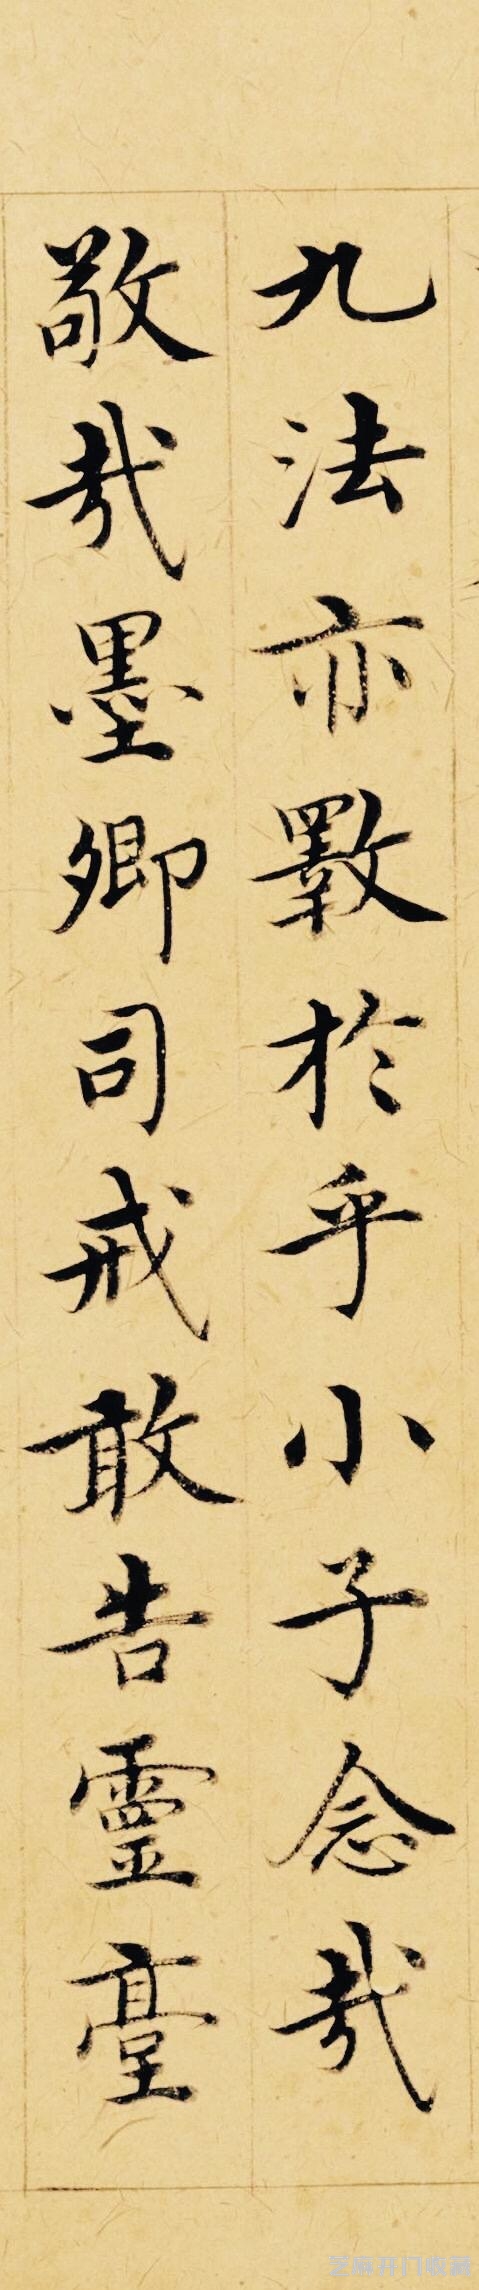 九法亦斁於乎小子念哉
敬哉墨卿司戒敢告靈臺
芝麻开门收藏